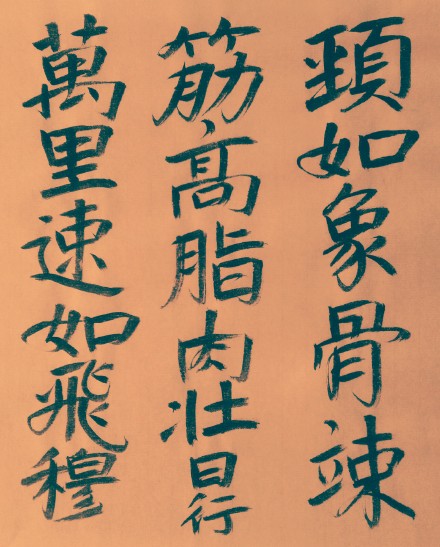 頸如象骨竦
筋高脂肉壯日行
萬里速如飛穆